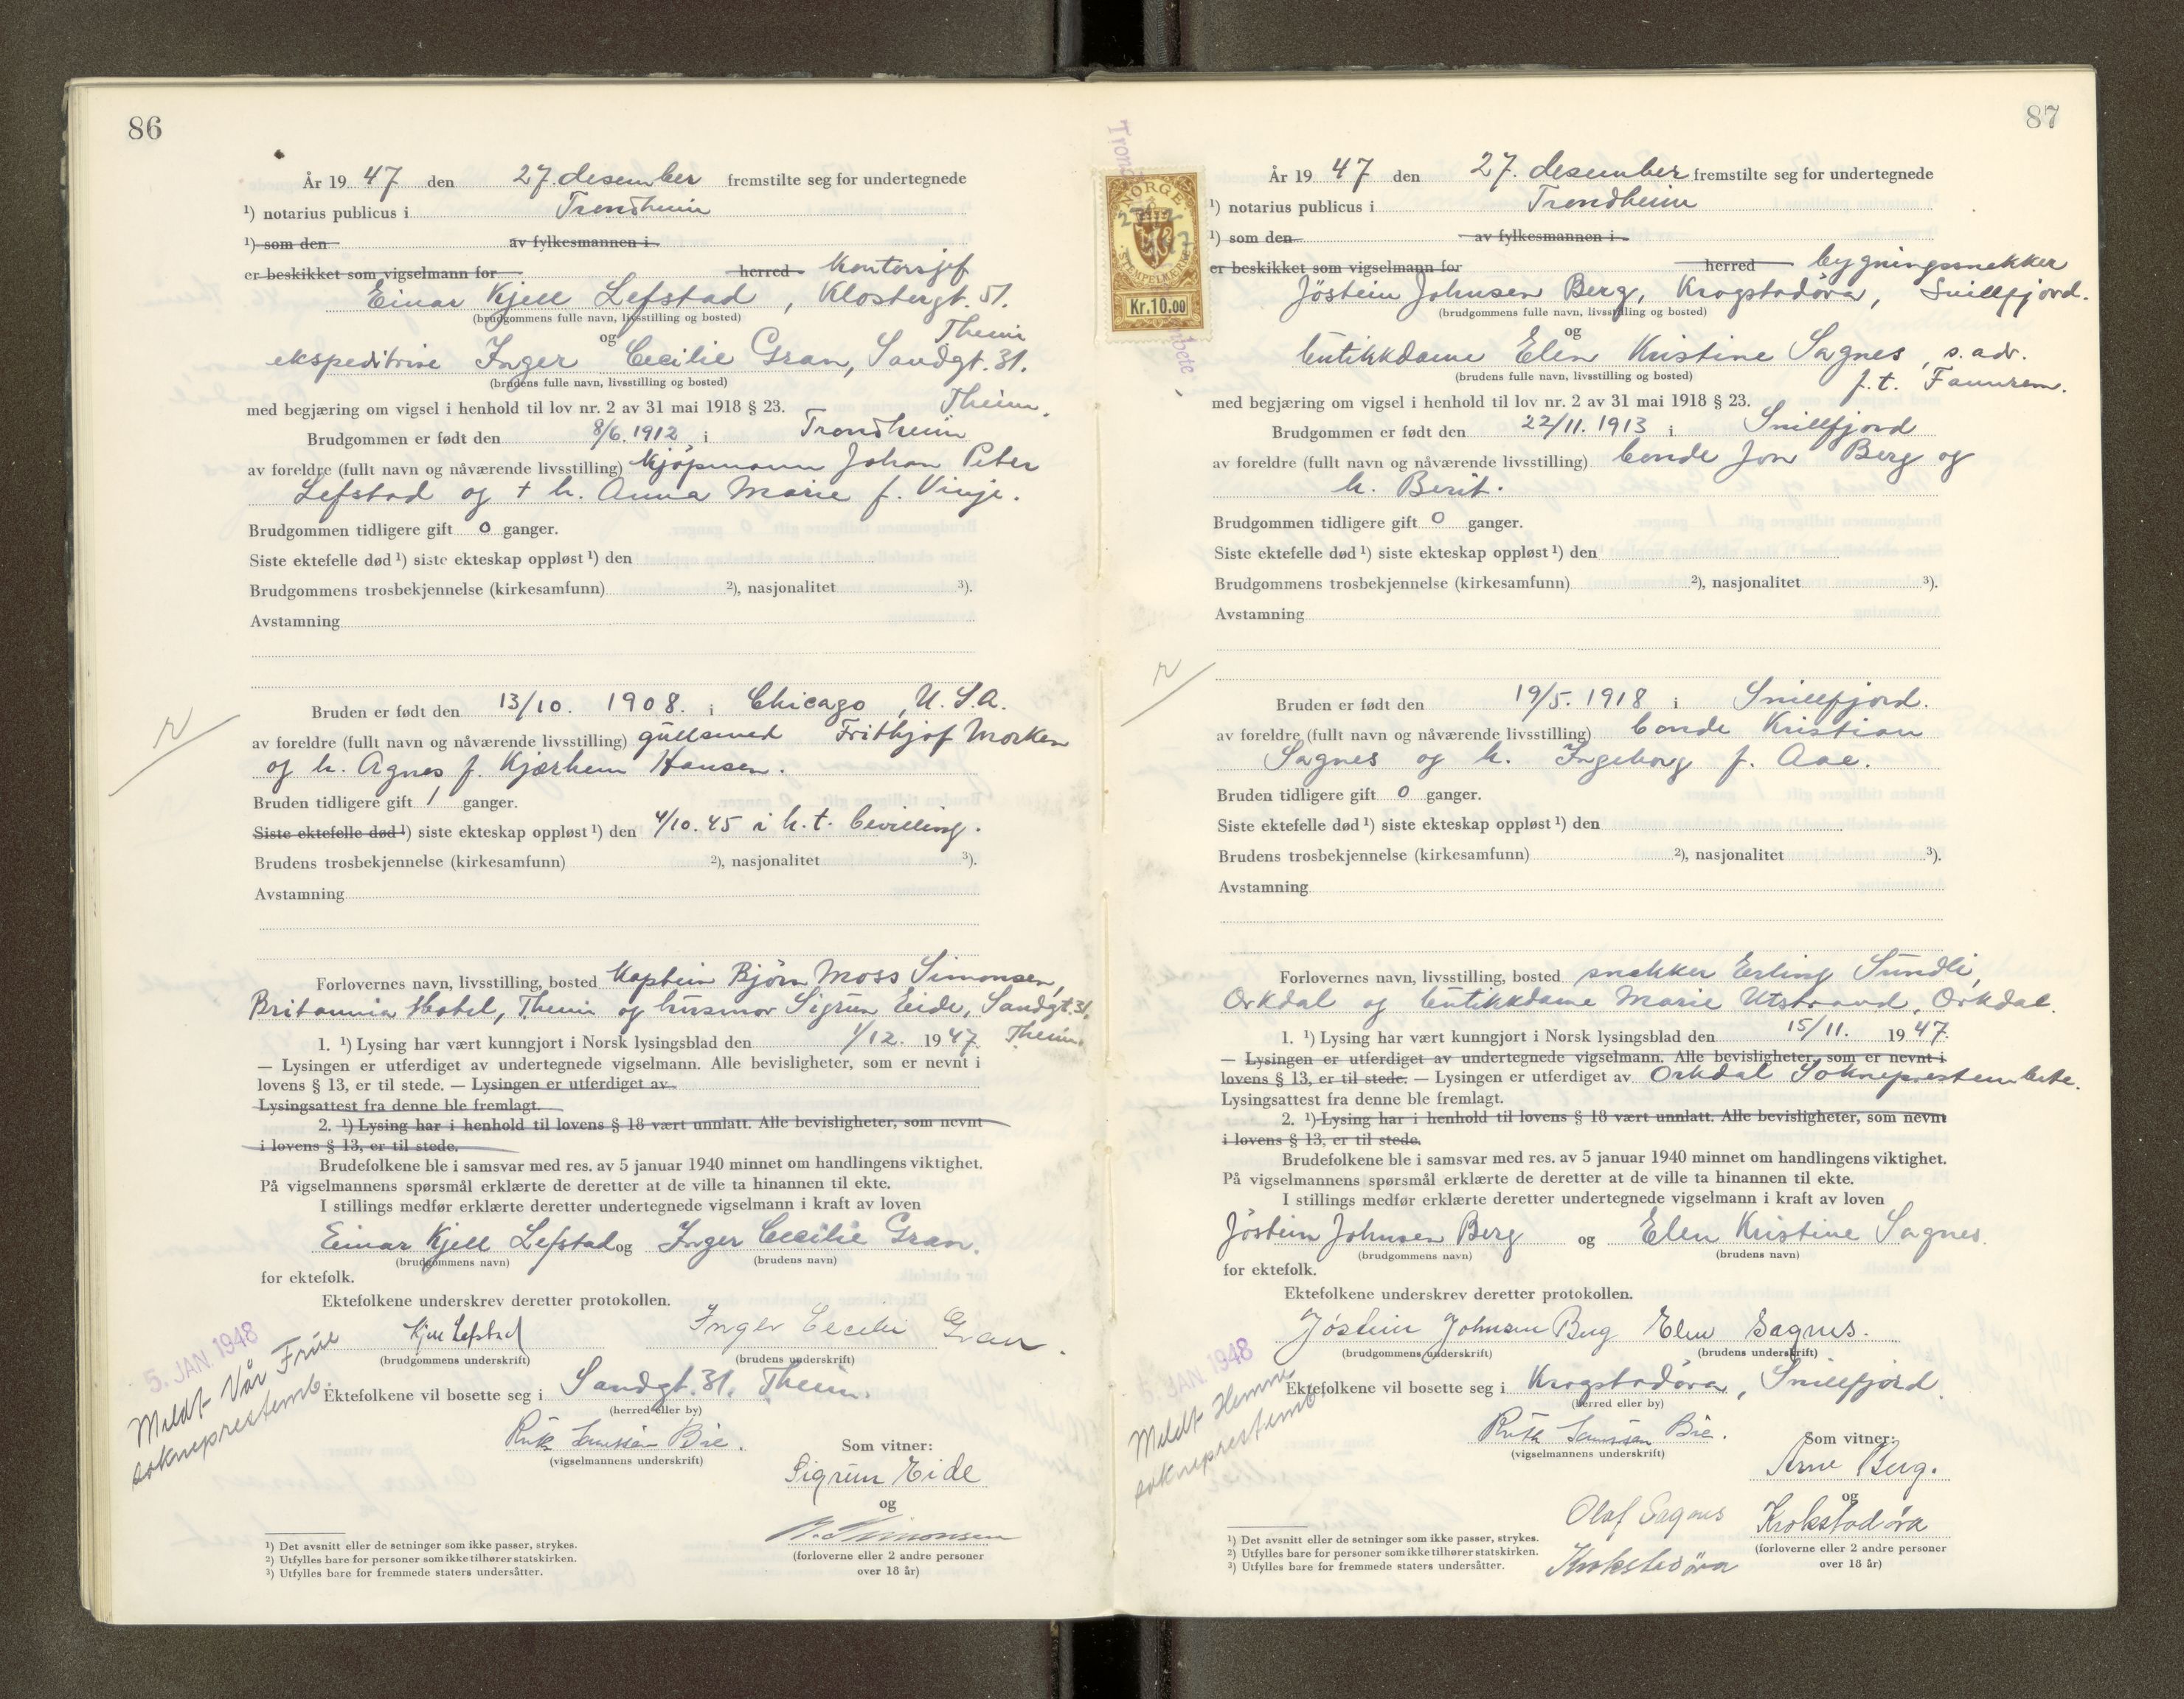 86
År 19 47 den 27. desember fremstilte seg for undertegnede
¹) notarius publicus i Trondheim
¹) som den av fylkesmannen i
er beskikket som vigselmann for herred Kontorsjef
Einar Kjell Lefstad, Klostergt. 51.
(brudgommens fulle navn, livsstilling og bosted) Theim
og
ekspeditrise Inger Cecilie Gran, Sandgt. 31.
(brudens fulle navn, livsstilling og bosted)
med begjæring om vigsel i henhold til lov nr. 2 av 31 mai 1918 § 23. Theim.
Brudgommen er født den 8/6. 1912 i Trondheim
av foreldre (fullt navn og nåværende livsstilling) Kjöpmann Johan Peter
Lefstad og + h. Anna Marie f. Vinje.
Brudgommen tidligere gift 0 ganger.
Siste ektefelle død ¹) siste ekteskap oppløst ¹) den
Brudgommens trosbekjennelse (kirkesamfunn) ²), nasjonalitet ³).
Avstamning
Bruden er født den 13/10. 1908. i Chicago, U.S.A.
av foreldre (fullt navn og nåværende livsstilling) gullsmed Frithjof Morken
og h. Agnes f. Kjærhem Hansen.
Bruden tidligere gift 1 ganger.
Siste ektefelle død ¹) siste ekteskap oppløst ¹) den 4/10. 45 i h.t. bevilling.
Brudens trosbekjennelse (kirkesamfunn) ²), nasjonalitet ³).
Avstamning
Forlovernes navn, livsstilling, bosted Kaptein Björn Moss Simonsen,
Britannia Hotel, Theim og husmor Sigrun Eide, Sandgt. 31,
1. ¹) Lysing har vært kunngjort i Norsk lysingsblad den 1/12. 19 47. Theim.
— Lysingen er utferdiget av undertegnede vigselmann. Alle bevisligheter, som er nevnt i
lovens § 13, er til stede. — Lysingen er utferdiget av
Lysingsattest fra denne ble fremlagt.
2. ¹) Lysing har i henhold til lovens § 18 vært unnlatt. Alle bevisligheter, som nevnt
i lovens § 13, er til stede.
Brudefolkene ble i samsvar med res. av 5 januar 1940 minnet om handlingens viktighet.
På vigselmannens spørsmål erklærte de deretter at de ville ta hinannen til ekte.
I stillings medfør erklærte deretter undertegnede vigselmann i kraft av loven
Einar Kjell Lefstad og Inger Cecilie Gran.
(brudgommens navn) (brudens navn)
for ektefolk.
Ektefolkene underskrev deretter protokollen.
Kjell Lefstad Inger Cecilie Gran.
(brudgommens underskrift) (brudens underskrift)
5. JAN. 1948
Meldt Vår Frue
sokneprestemb.
Ektefolkene vil bosette seg i Sandgt. 31. Theim.
(herred eller by)
Ruth Bie.
(vigselmannens underskrift)
Som vitner:
Sigrun Eide
og
Simonsen
(forloverne eller 2 andre personer
over 18 år)
¹) Det avsnitt eller de setninger som ikke passer, strykes.
²) Utfylles bare for personer som ikke tilhører statskirken.
³) Utfylles bare for fremmede staters undersåtter.
87
NORGE
STEMPELMERKE
Kr.10.00
År 19 47 den 27. desember fremstilte seg for undertegnede
¹) notarius publicus i Trondheim
¹) som den av fylkesmannen i
er beskikket som vigselmann for herred bygningssnekker
Jöstein Johnsen Berg, Krogstadöra, Snillfjord.
(brudgommens fulle navn, livsstilling og bosted)
og
butikkdame Elen Kristine Sagnes, s. adr.
(brudens fulle navn, livsstilling og bosted) f.t. Fannrem.
med begjæring om vigsel i henhold til lov nr. 2 av 31 mai 1918 § 23.
Brudgommen er født den 22/11. 1913 i Snillfjord
av foreldre (fullt navn og nåværende livsstilling) bonde Jon Berg og
h. Berit.
Brudgommen tidligere gift 0 ganger.
Siste ektefelle død ¹) siste ekteskap oppløst ¹) den
Brudgommens trosbekjennelse (kirkesamfunn) ²), nasjonalitet ³).
Avstamning
Bruden er født den 19/5. 1918 i Snillfjord.
av foreldre (fullt navn og nåværende livsstilling) bonde Kristian
Sagnes og h. Ingeborg f. Aae.
Bruden tidligere gift 0 ganger.
Siste ektefelle død ¹) siste ekteskap oppløst ¹) den
Brudens trosbekjennelse (kirkesamfunn) ²), nasjonalitet ³).
Avstamning
Forlovernes navn, livsstilling, bosted snekker Erling Sundli,
Orkdal og butikkdame Marie Utstrand, Orkdal.
1. ¹) Lysing har vært kunngjort i Norsk lysingsblad den 15/11. 19 47.
— Lysingen er utferdiget av undertegnede vigselmann. Alle bevisligheter, som er nevnt i
lovens § 13, er til stede. — Lysingen er utferdiget av Orkdal Sokneprestembete.
Lysingsattest fra denne ble fremlagt.
2. ¹) Lysing har i henhold til lovens § 18 vært unnlatt. Alle bevisligheter, som nevnt
i lovens § 13, er til stede.
Brudefolkene ble i samsvar med res. av 5 januar 1940 minnet om handlingens viktighet.
På vigselmannens spørsmål erklærte de deretter at de ville ta hinannen til ekte.
I stillings medfør erklærte deretter undertegnede vigselmann i kraft av loven
Jöstein Johnsen Berg og Elen Kristine Sagnes.
(brudgommens navn) (brudens navn)
for ektefolk.
Ektefolkene underskrev deretter protokollen.
Jöstein Johnsen Berg Elen Sagnes.
(brudgommens underskrift) (brudens underskrift)
5. JAN. 1948
Meldt Hemne
sokneprestemb
Ektefolkene vil bosette seg i Krogstadöra, Snillfjord.
(herred eller by)
Ruth Bie.
(vigselmannens underskrift)
Som vitner:
Arne Berg.
og
Olaf Sagnes Krokstadöra
Krokstadöra
(forloverne eller 2 andre personer
over 18 år)
¹) Det avsnitt eller de setninger som ikke passer, strykes.
²) Utfylles bare for personer som ikke tilhører statskirken.
³) Utfylles bare for fremmede staters undersåtter.